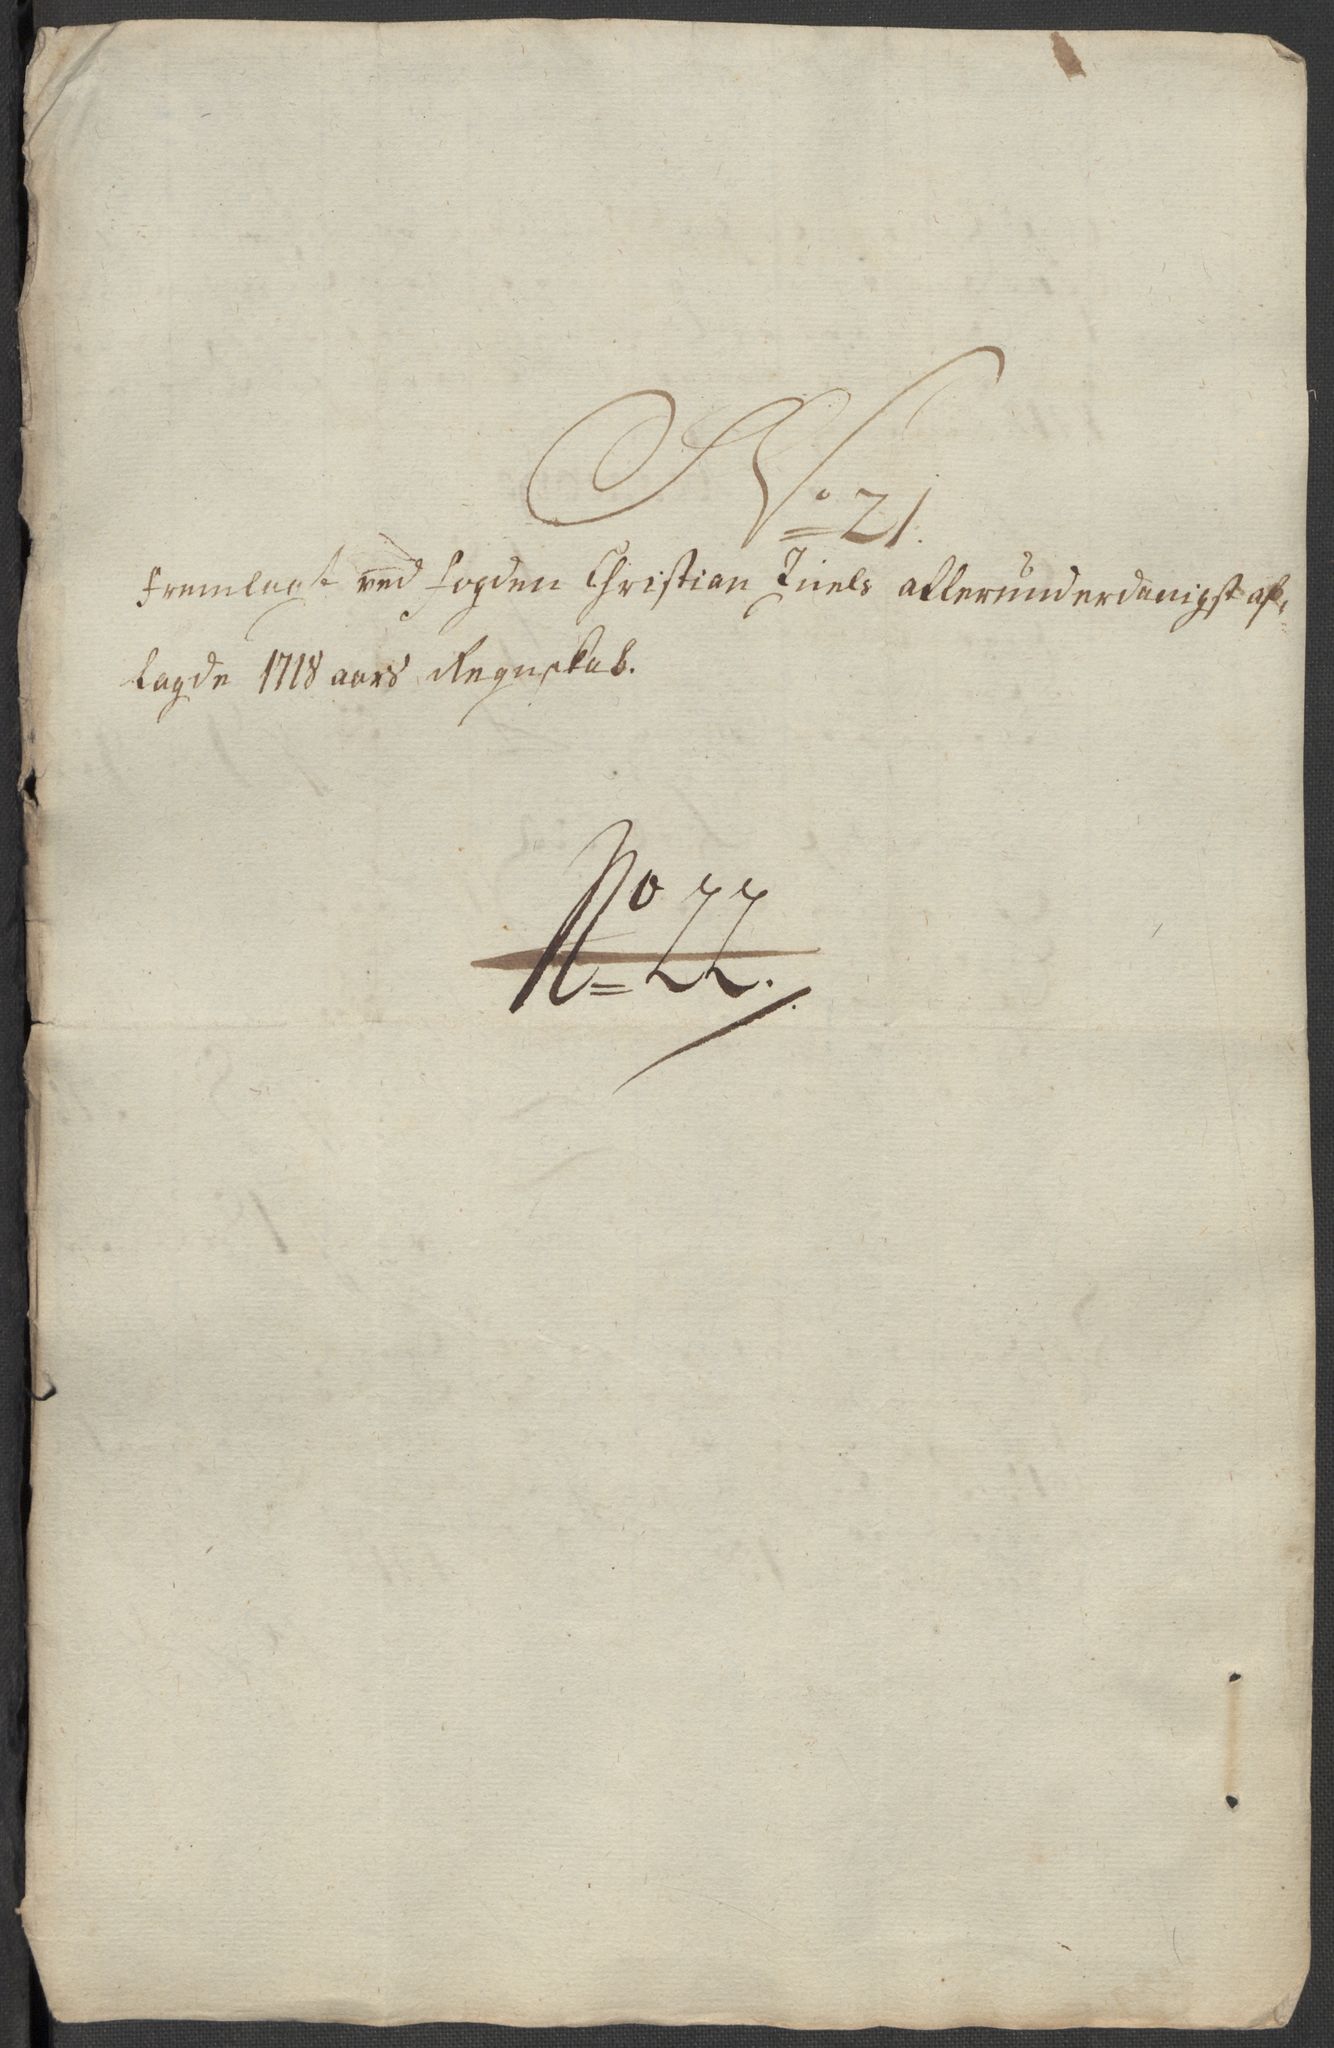 No 21.
Fremlagt ved fogden Christian Juels allerunderdanigst af-
lagde 1718 aars Regnskab.
No 22.